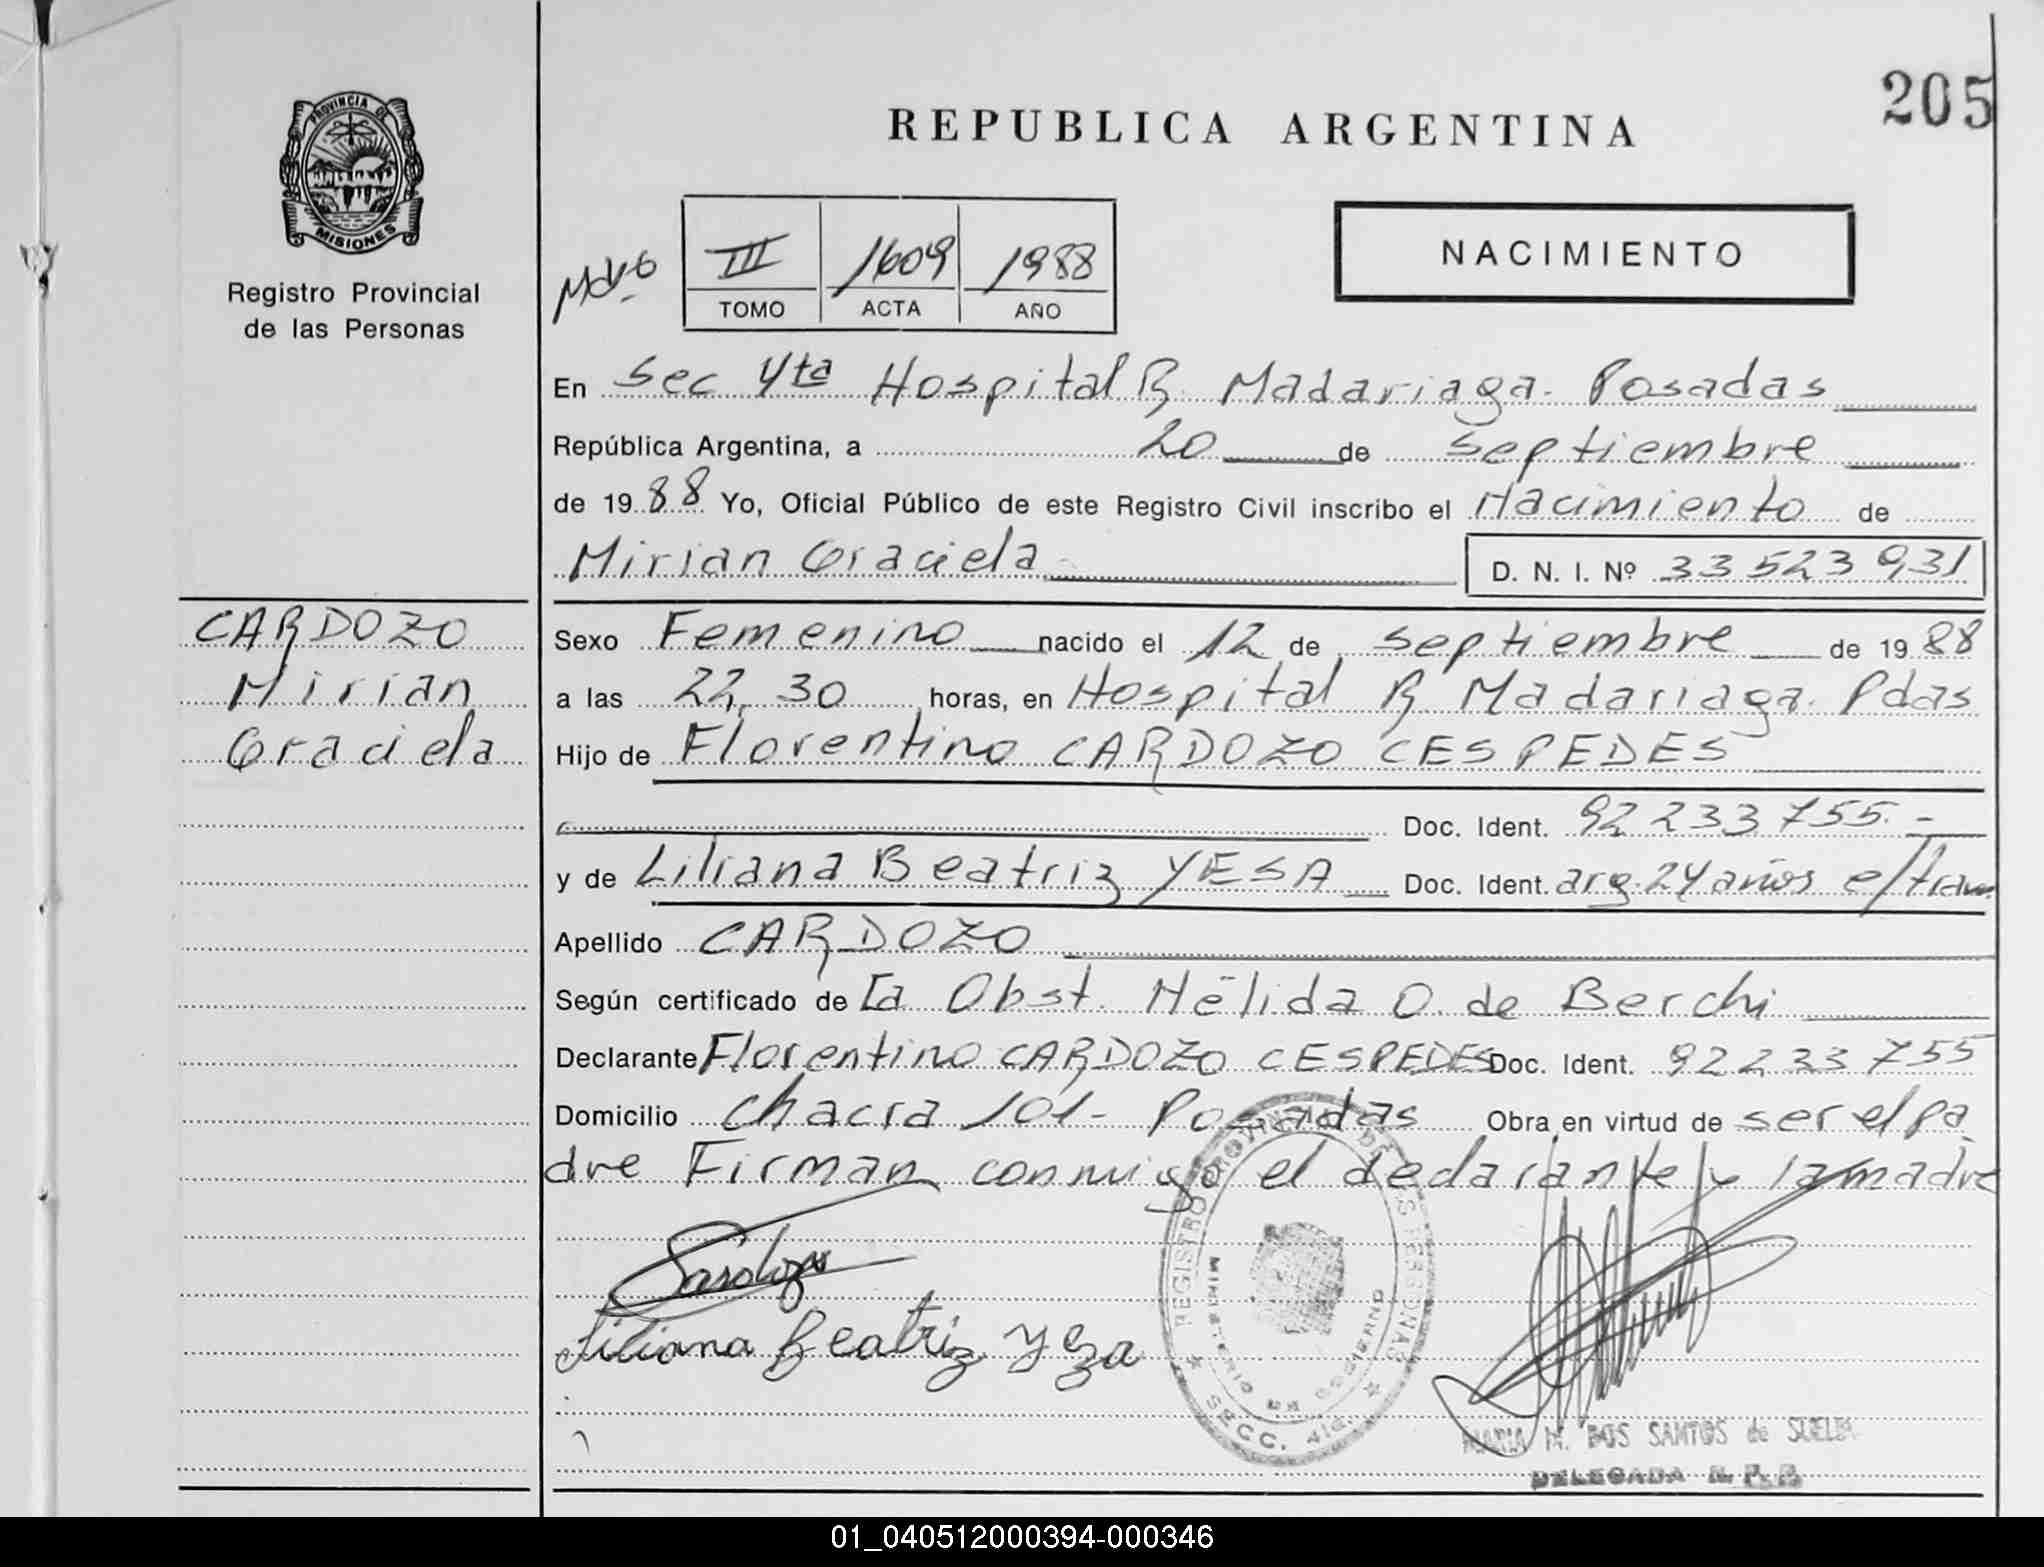 205
REPUBLICA ARGENTINA
PROVINCIA DE
MISIONES
Registro Provincial
de las Personas
III 1609 1988
TOMO ACTA AÑO
NACIMIENTO
En Sec 4ta Hospital R. Madariaga - Posadas
República Argentina, a 20 de septiembre
de 1988 Yo, Oficial Público de este Registro Civil inscribo el Nacimiento de
Mirian Graciela
D. N. I. Nº 33523931
CARDOZO
Mirian
Graciela
Sexo Femenino nacido el 12 de septiembre de 1988
a las 22,30 horas, en Hospital R Madariaga. Pdas
Hijo de Florentino CARDOZO CESPEDES
Doc. Ident. 92233755.-
y de Liliana Beatriz YESA Doc. Ident. arg. 24 años e/tram.
Apellido CARDOZO
Según certificado de la Obst. Nélida O. de Berchi
Declarante Florentino CARDOZO CESPEDES Doc. Ident. 92233755
Domicilio Chacra 101 - Posadas Obra en virtud de ser el pa
dre Firman conmigo el declarante y la madre
Cardozo
Liliana Beatriz Yeza
REGISTRO PROVINCIAL DE LAS PERSONAS
MINISTERIO DE GOBIERNO
SECC. 4ta.
MARIA M. DOS SANTOS de
DELEGADA R. P. P.
01_040512000394-000346